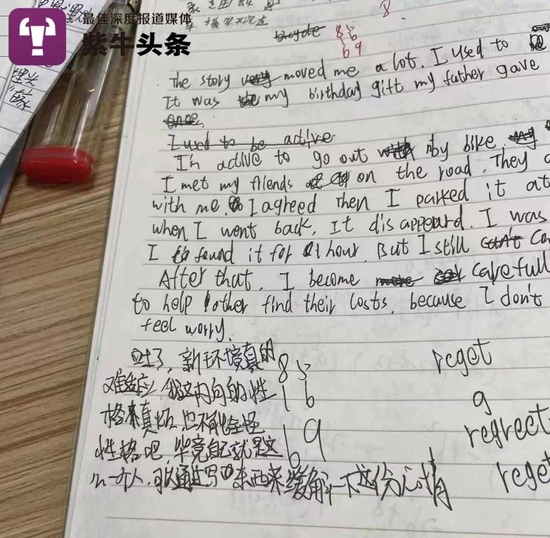 最佳深度报道媒体
紫牛头条
bicycle 86
69
8
The story moved me a lot. I used to
It was my birthday gift my father gave
once.
I used to be active
I'm active to go out by bike.
I met my friends on the road. They a
with me. I agreed then I parked it at
when I went back, It disappeard. I was
I found it for 1 hour. But I still can't ca
After that, I become more carefull
to help other find their losts, because I don't
feel worry.
吐了，新环境真的 83 reget
难适应，我这内向的性 16 g
格 真 也不能全怪 19 regreet
性格吧，毕竟自己就是这 6 reget
么一个人，可以通过写 东西来缓解一下这份心情